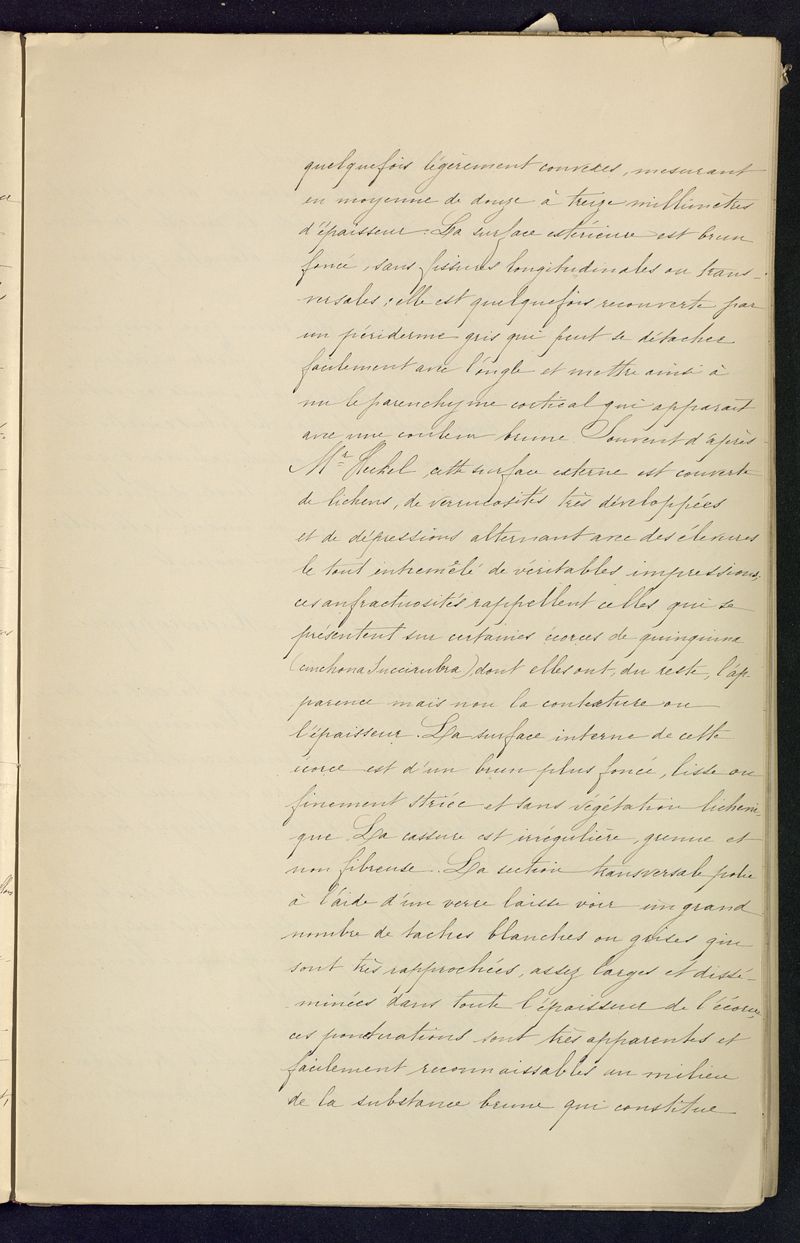 quelquefois légèrement convexes, mesurant
en moyenne de douze à treize millimètres
d'épaisseur. La surface extérieure est brun
foncé, sans fissures longitudinales ou trans-
versales; elle est quelquefois recouverte par
un périderme gris qui peut se détacher
facilement avec l'ongle et mettre ainsi à
nu le parenchyme cortical qui apparait
avec une couleur brune. Souvent d'après
Mr Heckel, cette surface externe est couverte
de lichens, de verrucosités très développées
et de dépressions alternant avec des élevures
le tout entremêlé de véritables impressions;
ces anfractuosités rappellent celles qui se
présentent sur certaines écorces de quinquina
(cinchona Succirubra), dont elles ont, du reste, l'ap-
parence mais non la contexture ou
l'épaisseur. La surface interne de cette
écorce est d'un brun plus foncé, lisse ou
finement striée et sans végétation licheni-
que. La cassure est irrégulière, grenue et
non fibreuse. La section transversale polie
à l'aide d'un verre laisse voir un grand
nombre de taches blanches ou grises qui
sont très rapprochées, assez larges et dissé-
minées dans toute l'épaisseur de l'écorce,
ces ponctuations sont très apparentes et
facilement reconnaissables au milieu
de la substance brune qui constitue